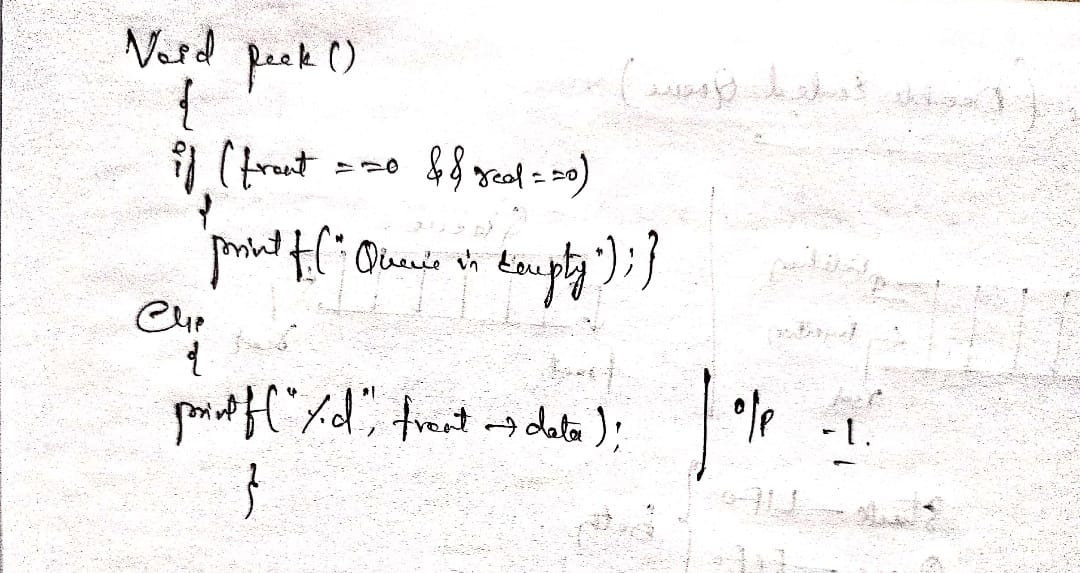 Void peek ()
{
if (front ==0 && real ==0)
{
printf(" Queue is Empty"); }
Else
{
printf("%d", front → data);
o/p -1.
}